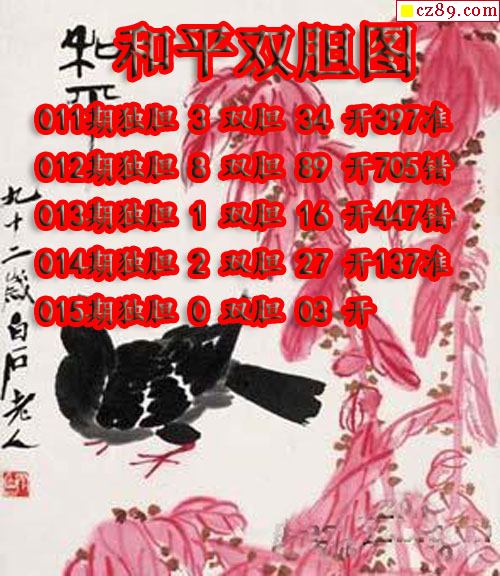 cz89.com
和平双胆图
和平
011期独胆 3 双胆 34 开397准
012期独胆 8 双胆 89 开705错
013期独胆 1 双胆 16 开447错
014期独胆 2 双胆 27 开137准
015期独胆 0 双胆 03 开
九十二岁白石老人